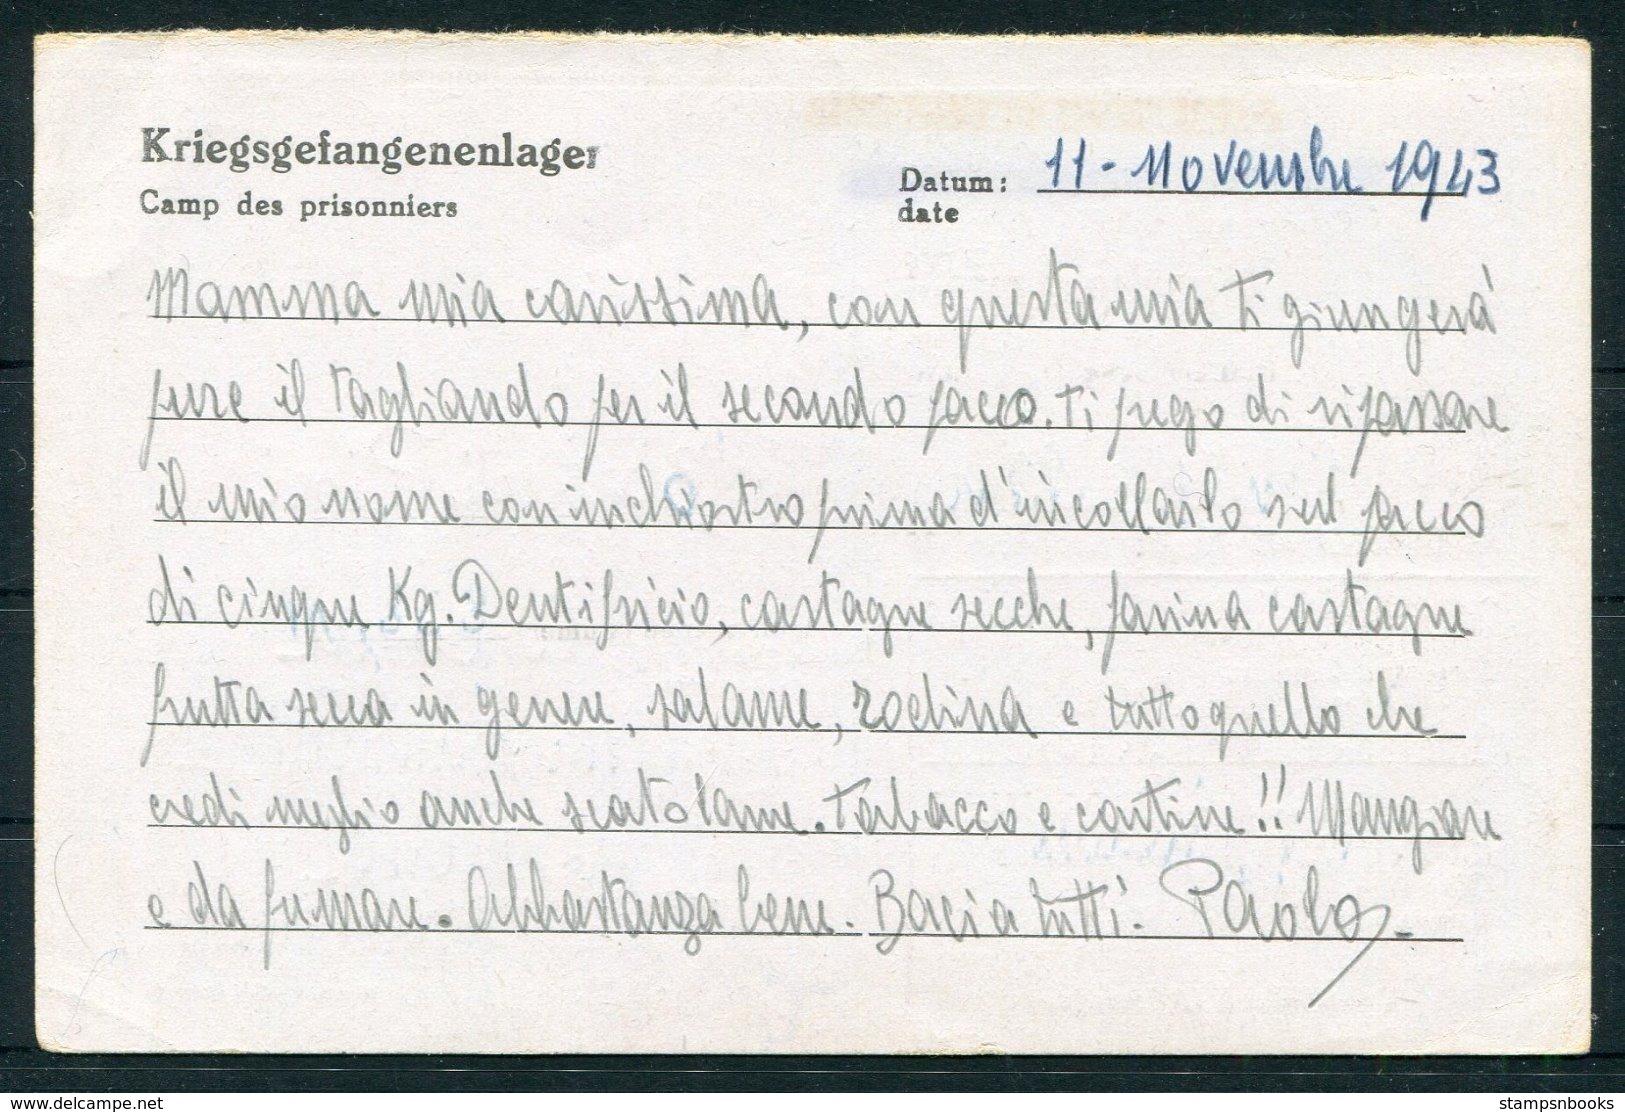 Kriegsgefangenenlager
Camp des prisonniers
Datum: 11-Novembre 1943
date
Mamma mia carissima, con questa mia ti giungerà
pure il tagliando per il secondo pacco. Ti prego di ripassare
il mio nome con inchiostro prima d'incollarlo sul pacco
di cinque Kg. Dentifricio, castagne secche, farina castagne
frutta secca in genere, salame, e tutto quello che
credi meglio anche scatolame. Tabacco e cartine!! Mangiare
e da fumare. Abbastanza bene. Baci a tutti. Paolo.
www.delcampe.net
stampsnbooks